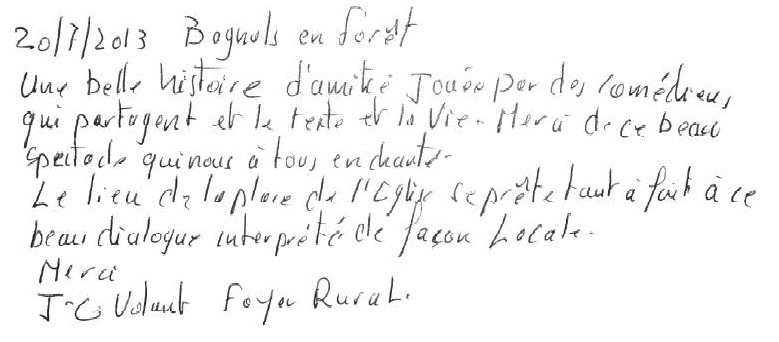 20/7/2013 Bagnols en forêt
Une belle histoire d'amitié Jouée par des comédiens,
qui partagent et le texte et la Vie - Merci de ce beau
spectacle qui nous à tous enchanté -
Le lieu de la place de l'Eglise se prête tout à fait à ce
beau dialogue interprété de façon Locale.
Merci
J-C Volant Foyer Rural.